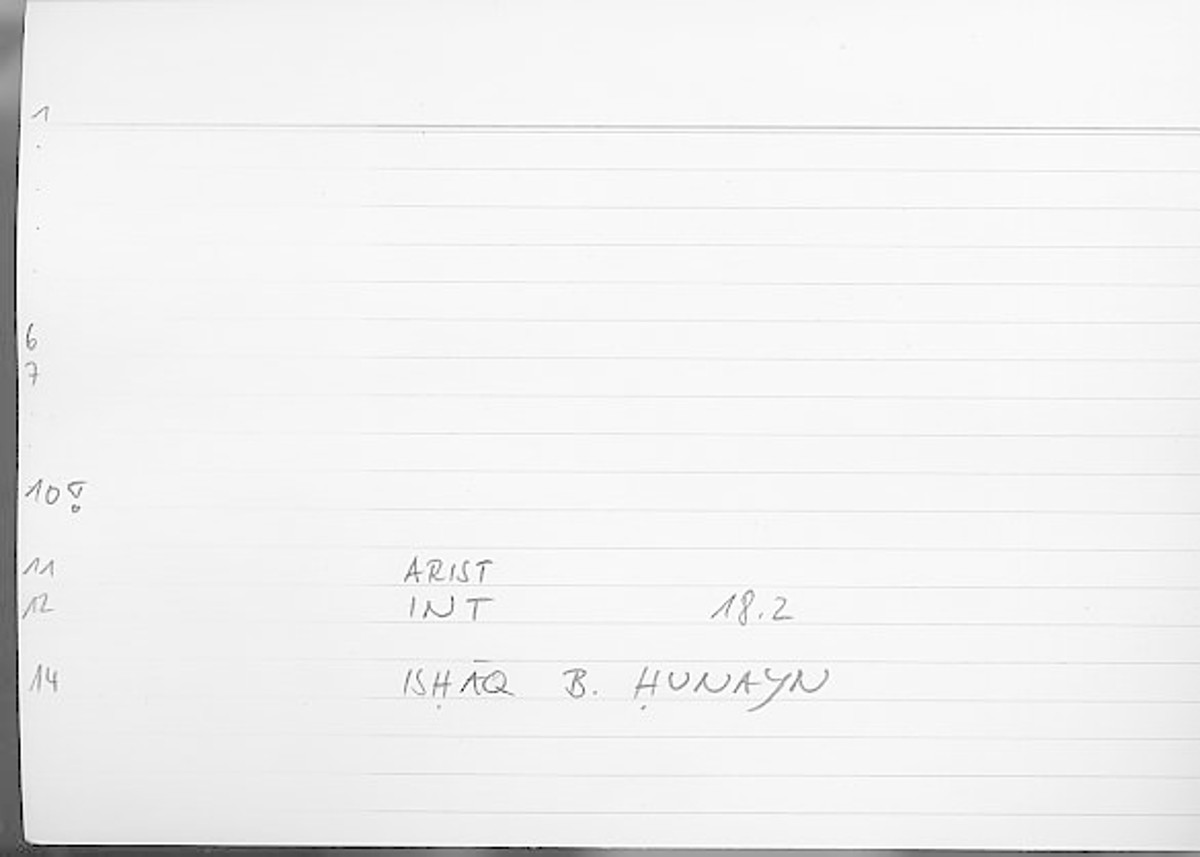 1
6
7
10!
11 ARIST
12 INT 18.2
14 ISḤĀQ B. ḤUNAYN